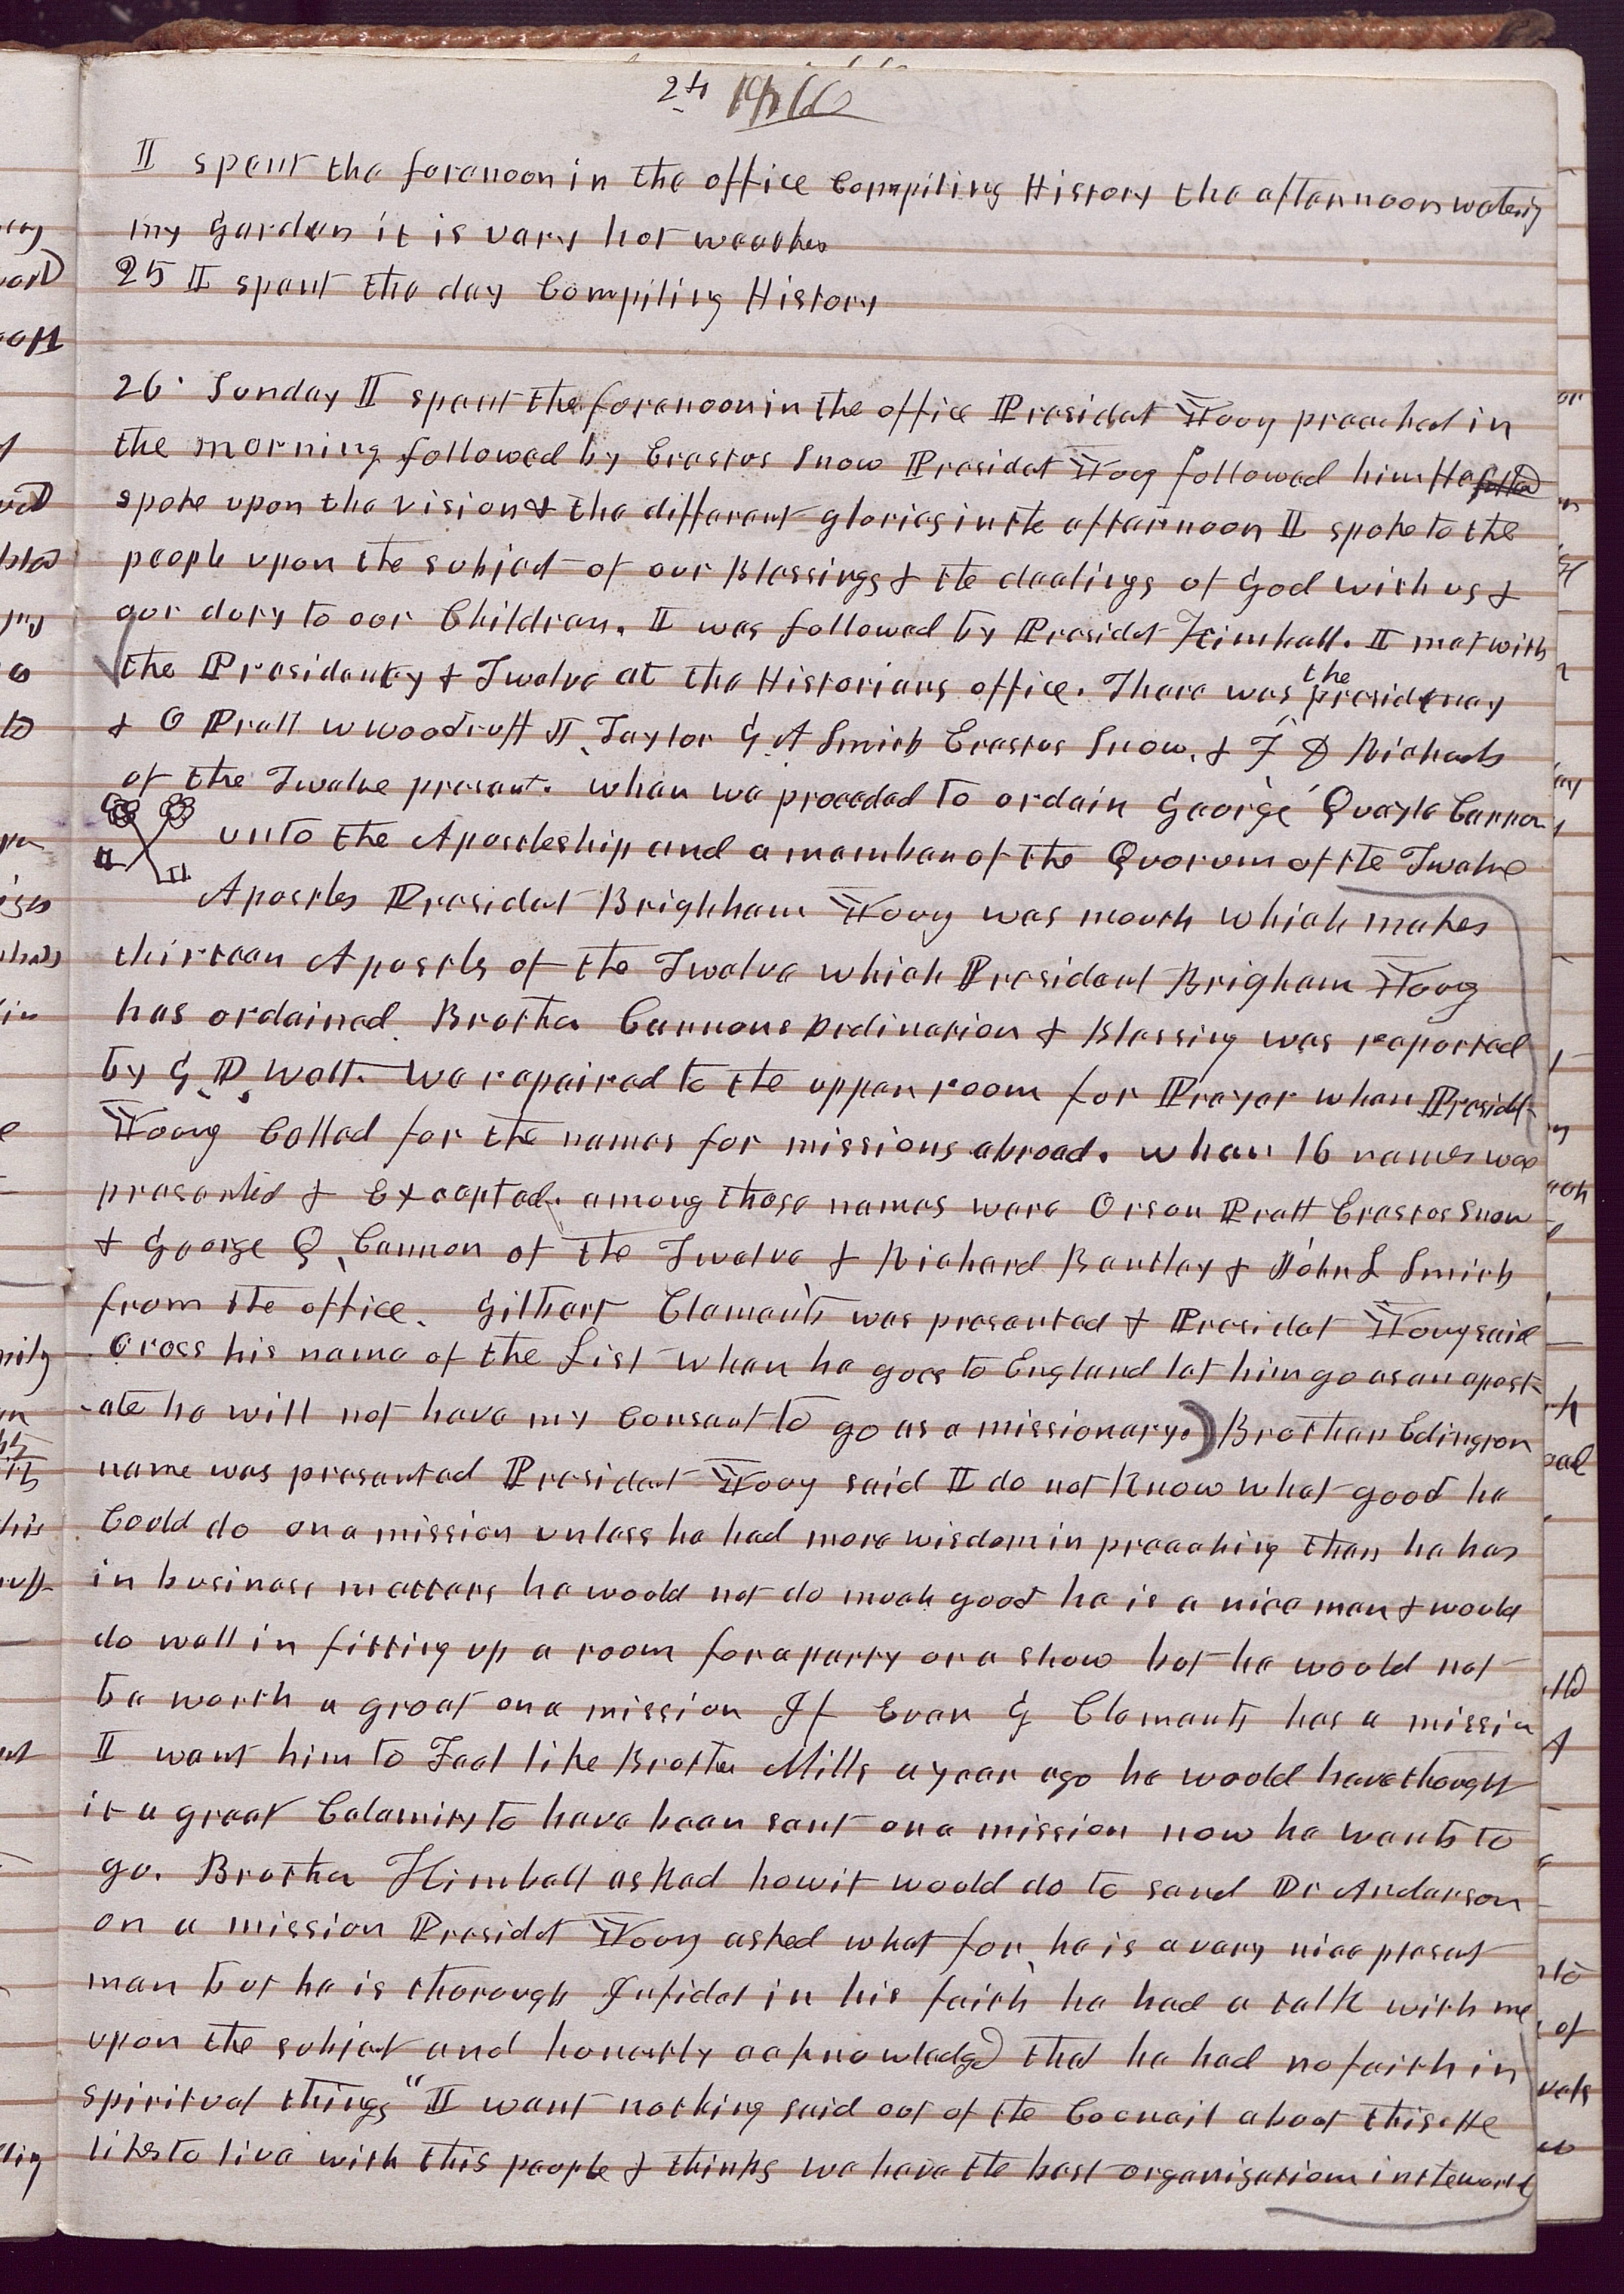 24 1860
I spent the forenoon in the office Compiling History the afternoon watering
my Garden it is very hot weather
25 I spent the day Compiling History
26 Sunday I spent the forenoon in the office Presidet Young preached in
the morning followed by Erastus Snow Presidet Young followed him He
spoke upon the vision & the different glories in the afternoon I spoke to the
people upon the subject of our Blessings & the dealings of God with us &
our duty to our Children. I was followed by Presidet Kimball. I met with
the Presidency & Twelve at the Historians office. There was the presidency
& O Pratt W Woodruff J Taylor G A Smith Erastus Snow, & F D Richards
of the Twelve present. when we proceded to ordain George Quayle Cannon
unto the Apostleship and a member of the Quorum of the Twelve
Apostles Presidet Brighham Young was mouth which makes
thirteen Apostls of the Twelve which President Brigham Young
has ordained. Brother Cannons ordination & Blessing was reported
by G. D. Watt. We repaired to the upper room for Prayer when Presidet
Young Called for the names for missions abroad. when 16 names was
presented & Excepted. among those names were Orson Pratt Erastus Snow
& George Q. Cannon of the Twelve & Richard Bentley & John L Smith
from the office. Gilbert Clements was presented & Presidet Young said
Cross his name of the List when he goes to England let him go as an apost-
-ate he will not have my Consent to go as a missionary.) Brother Edington
name was presented President Young said I do not Know what good he
Could do on a mission unless he had more wisdom in preaching than he has
in business matters he would not do much good he is a nice man & would
do well in fitting up a room for a party or a show but he would not
be worth a groat on a mission If Evan G Clements has a missin
I want him to Feel like Brother Mills a year ago he would have thought
it a great Calamity to have been sent on a mission now he wants to
go. Brother Kimball asked how it would do to send Dr Anderson
on a mission Presidet Young asked what for, he is a very nice plesent
man but he is thorough Infidel in his faith he had a talk with me
upon the subject and honestly acknowledged that he had no faith in
spiritual things" I want nothing said out of the Council about this. He
likes to live with this people & thinks we have the best organisation in the world